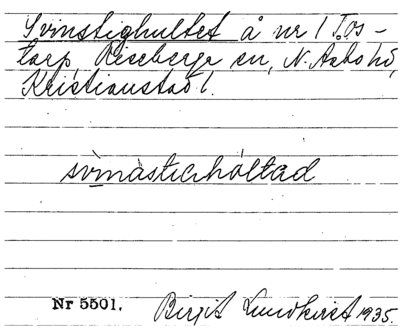 Svinstighultet å nr 1 Tos-
tarp Riseberga sn, N. Åsbo hd,
Kristianstad l.
svìnàstichóltad
Nr 5501. Birgit Lundkvist 1935.